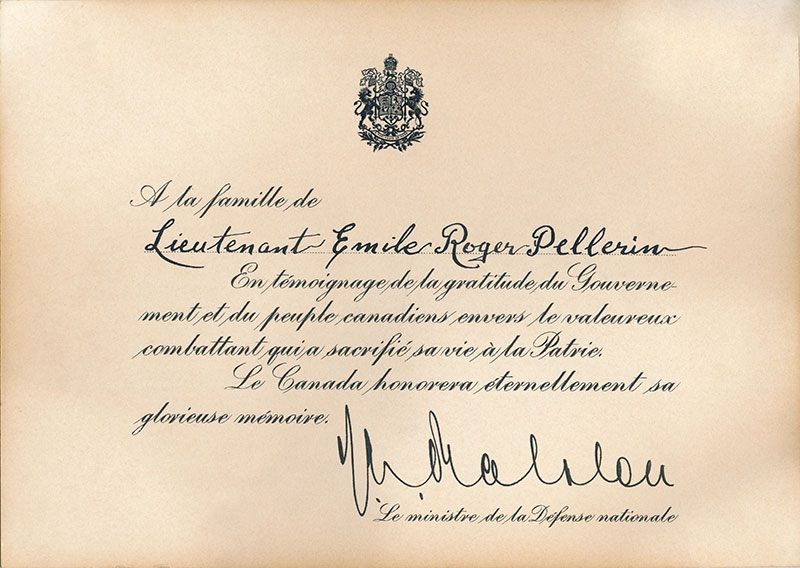 A la famille de
Lieutenant Emile Roger Pellerin
En témoignage de la gratitude du Gouverne-
ment et du peuple canadiens envers le valeureux
combattant qui a sacrifié sa vie à la Patrie.
Le Canada honorera éternellement sa
glorieuse mémoire.
Le ministre de la Défense nationale